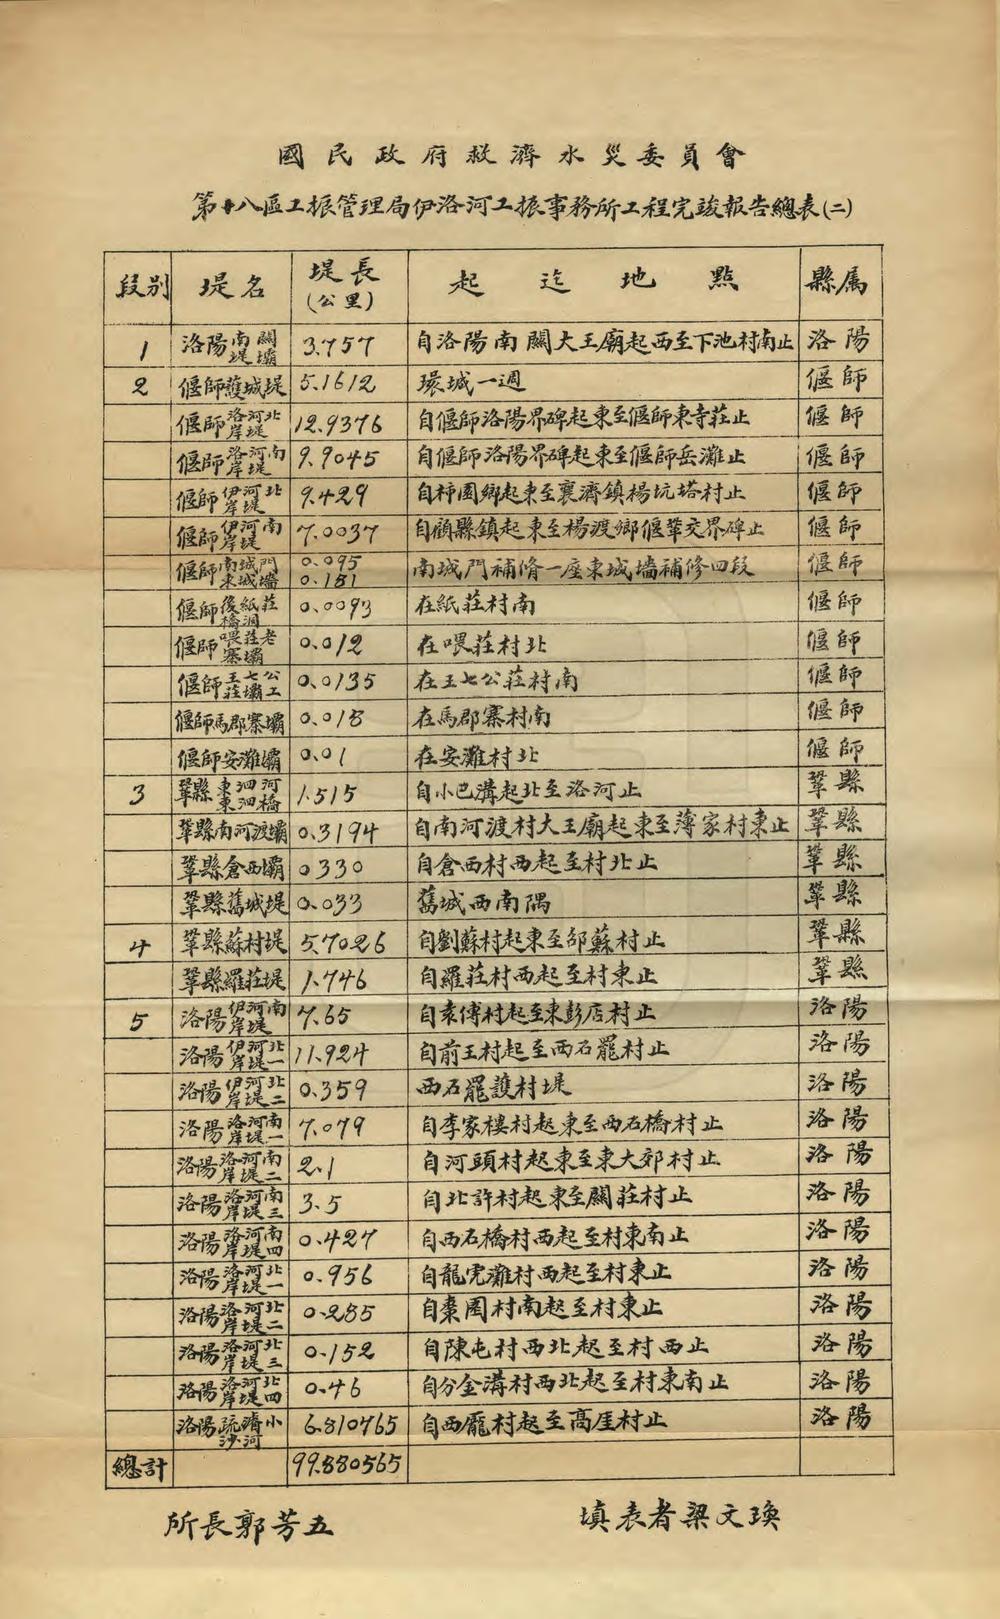 國民政府救濟水災委員會
第十八區工振管理局伊洛河工振事務所工程完竣報告總表(二)
段別 堤名 堤長(公里) 起迄地點 縣属
1 洛陽南關堤壩 3.757 自洛陽南關大王廟起西至下池村南止 洛陽
2 偃師護城堤 5.1612 環城一週 偃師
偃師洛河北岸堤 12.9376 自偃師洛陽界碑起東至偃師東寺莊止 偃師
偃師洛河南岸堤 9.9045 自偃師洛陽界碑起東至偃師岳灘止 偃師
偃師伊河北岸堤 9.429 自柿園鄉起東至襄濟鎮楊坑塔村止 偃師
偃師伊河南岸堤 7.0037 自顧縣鎮起東至楊渡鄉偃鞏交界碑止 偃師
偃師南城門東城墻 0.095 0.181 南城門補脩一座東城墻補修四段 偃師
偃師後紙莊橋洞 0.0093 在紙莊村南 偃師
偃師喂莊老寨壩 0.012 在喂莊村北 偃師
偃師王七公莊壩工 0.0135 在王七公莊村南 偃師
偃師馬郡寨壩 0.015 在馬郡寨村南 偃師
偃師安灘壩 0.01 在安灘村北 偃師
3 鞏縣東泗河東泗橋 1.515 自小巴溝起北至洛河止 鞏縣
鞏縣南河渡壩 0.3194 自南河渡村大王廟起東至薄家村東止 鞏縣
鞏縣倉西壩 0330 自倉西村西起至村北止 鞏縣
鞏縣舊城堤 0.033 舊城西南隅 鞏縣
4 鞏縣蘇村堤 5.7026 自劉蘇村起東至邵蘇村止 鞏縣
鞏縣羅莊堤 1.746 自羅莊村西起至村東止 鞏縣
5 洛陽伊河南岸堤 7.65 自袁傅村起至東彭店村止 洛陽
洛陽伊河北岸堤一 11.924 自前王村起至西石罷村止 洛陽
洛陽伊河北岸堤二 0.359 西石罷護村堤 洛陽
洛陽洛河南岸堤一 7.079 自李家樓村起東至西石橋村止 洛陽
洛陽洛河南岸堤二 2.1 自河頭村起東至東大郊村止 洛陽
洛陽洛河南岸堤三 3.5 自北許村起東至關莊村止 洛陽
洛陽洛河南岸堤四 0.427 自西石橋村西起至村東南止 洛陽
洛陽洛河北岸堤一 0.956 自龍虎灘村西起至村東止 洛陽
洛陽洛河北岸堤二 0.285 自棗園村南起至村東止 洛陽
洛陽洛河北岸堤三 0.152 自陳屯村西北起至村西止 洛陽
洛陽洛河北岸堤四 0.46 自分金溝村西北起至村東南止 洛陽
洛陽疏濬小沙河 6.810765 自西龐村起至高崖村止 洛陽
總計 99.880565
所長郭芳五 填表者梁文瑍